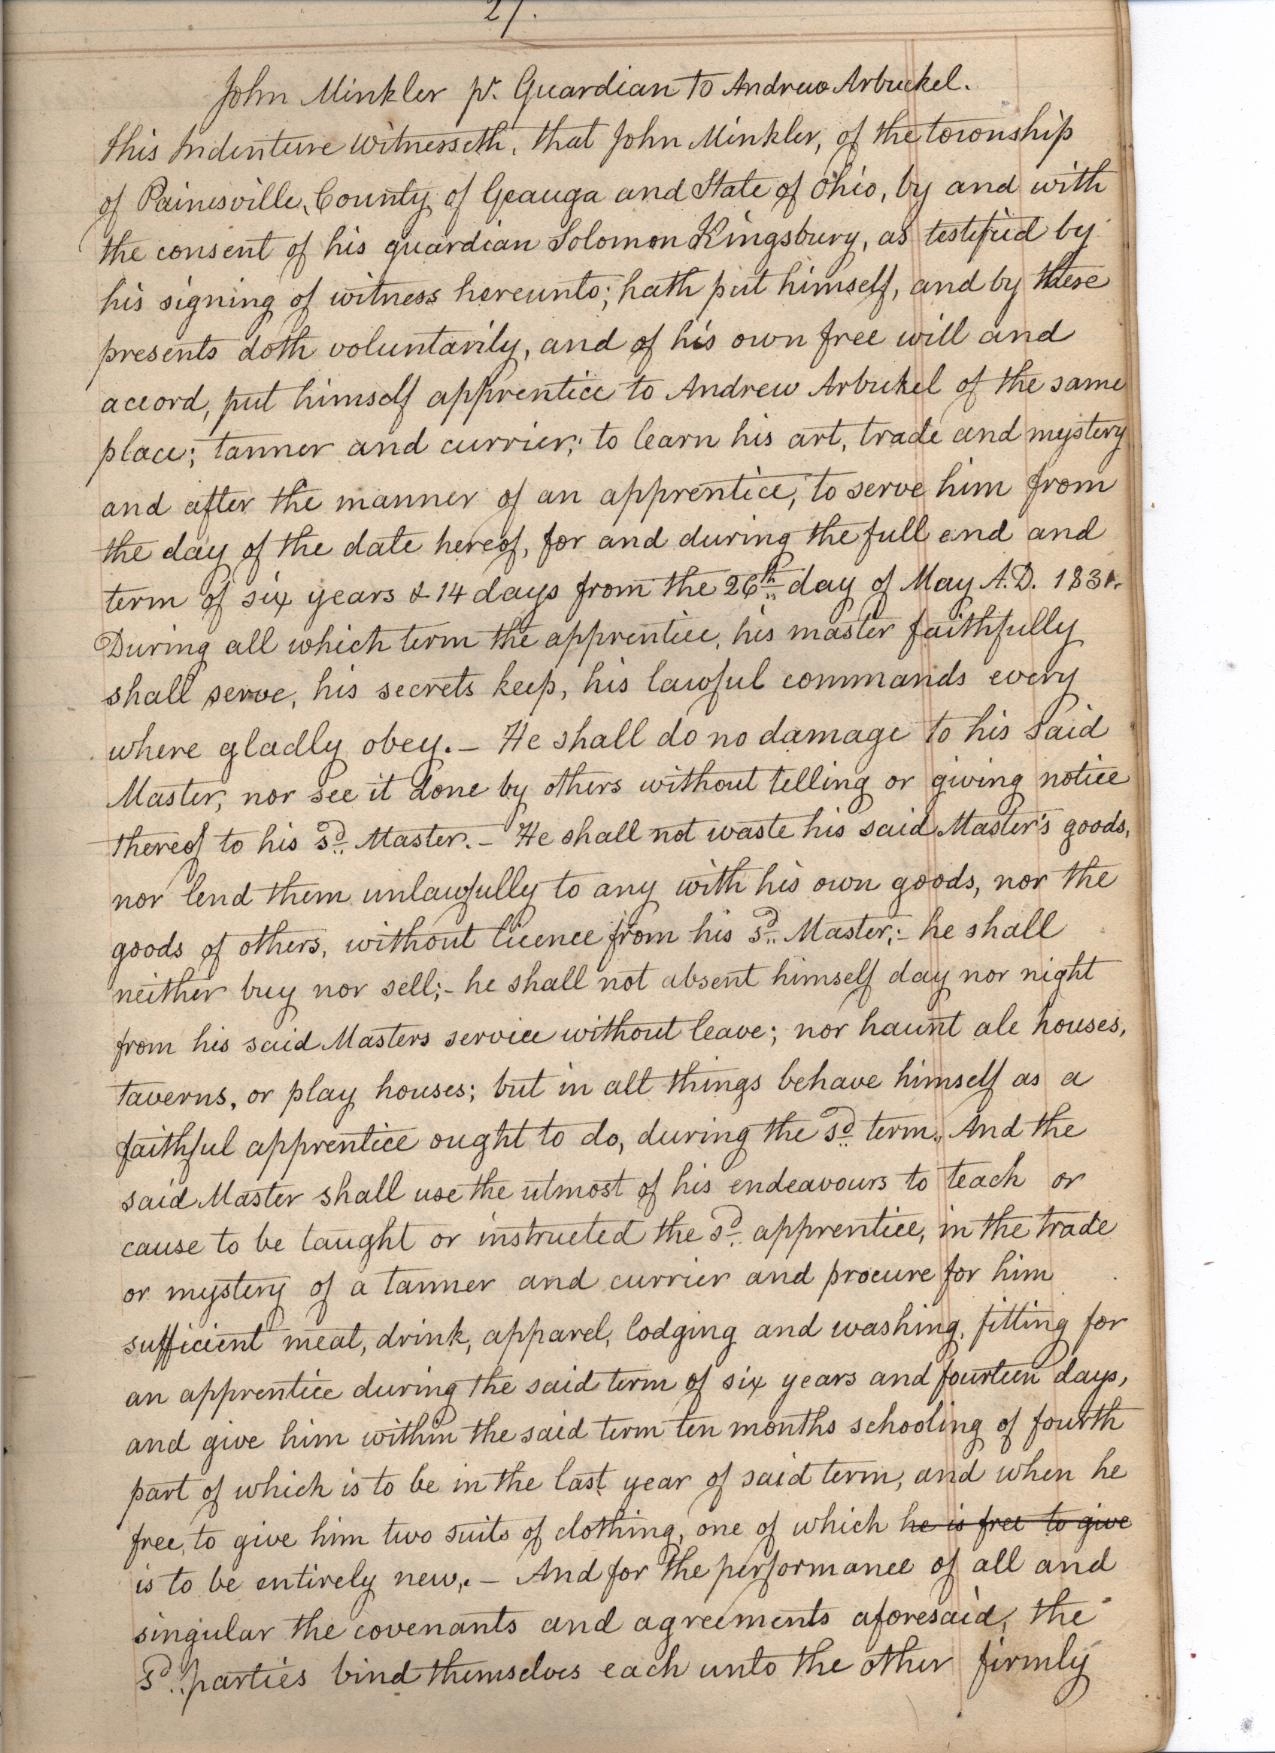 27.
John Minkler pr. Guardian to Andrew Arbuckel.
This Indenture Witnesseth, that John Minkler, of the township
of Painesville, County of Geauga and State of Ohio, by and with
the consent of his guardian Solomon Kingsbury, as testified by
his signing of witness hereunto; hath put himself, and by these
presents doth voluntarily, and of his own free will and
accord, put himself apprentice to Andrew Arbuckel of the same
place; tanner and currier; to learn his art, trade and mystery
and after the manner of an apprentice, to serve him from
the day of the date hereof, for and during the full end and
term of six years & 14 days from the 26th day of May A.D. 1831.
During all which term the apprentice, his master faithfully
shall serve, his secrets keep, his lawful commands every
where gladly obey. – He shall do no damage to his said
Master, nor see it done by others without telling or giving notice
thereof to his sd. Master. – He shall not waste his said Master's goods,
nor lend them unlawfully to any with his own goods, nor the
goods of others, without licence from his sd. Master; – he shall
neither buy nor sell; – he shall not absent himself day nor night
from his said Masters service without leave; nor haunt ale houses,
taverns, or play houses; but in all things behave himself as a
faithful apprentice ought to do, during the sd. term. And the
said Master shall use the utmost of his endeavours to teach or
cause to be taught or instructed the sd. apprentice, in the trade
or mystery of a tanner and currier and procure for him
sufficient meat, drink, apparel, lodging and washing, fitting for
an apprentice during the said term of six years and fourteen days,
and give him within the said term ten months schooling of fourth
part of which is to be in the last year of said term, and when he
free, to give him two suits of clothing, one of which he is free to give
is to be entirely new. – And for the performance of all and
singular the covenants and agreements aforesaid, the
sd. parties bind themselves each unto the other firmly